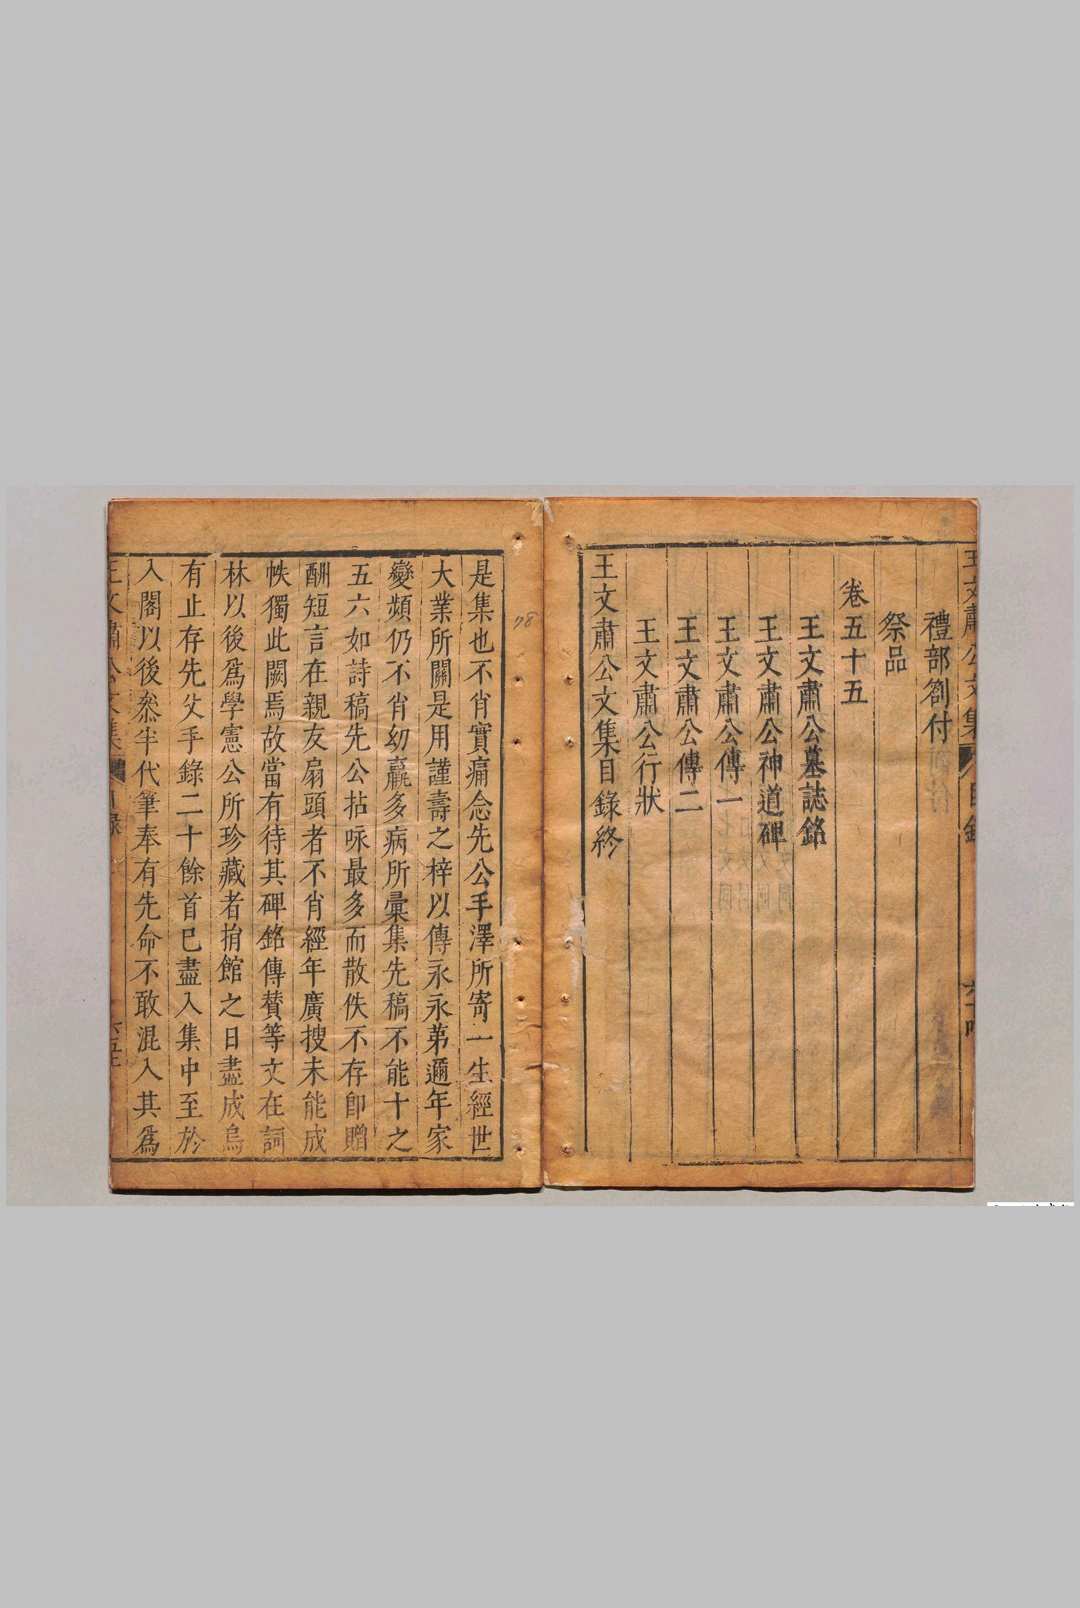 王文肅公文集
目錄
禮部劄付
祭品
卷五十五
王文肅公墓誌銘
王文肅公神道碑
王文肅公傳一
王文肅公傳二
王文肅公行狀
王文肅公文集目錄終
78
是集也不肖實痛念先公手澤所寄一生經世
大業所關是用謹壽之梓以傳永永第邇年家
變頻仍不肖幼羸多病所彙集先稿不能十之
五六如詩稿先公拈咏最多而散佚不存即贈
酬短言在親友扇頭者不肖經年廣搜未能成
帙獨此闕焉故當有待其碑銘傳贊等文在詞
林以後爲學憲公所珍藏者捐館之日盡成烏
有止存先父手錄二十餘首已盡入集中至於
入閣以後叅半代筆奉有先命不敢混入其爲
王文肅公文集
目錄
六五